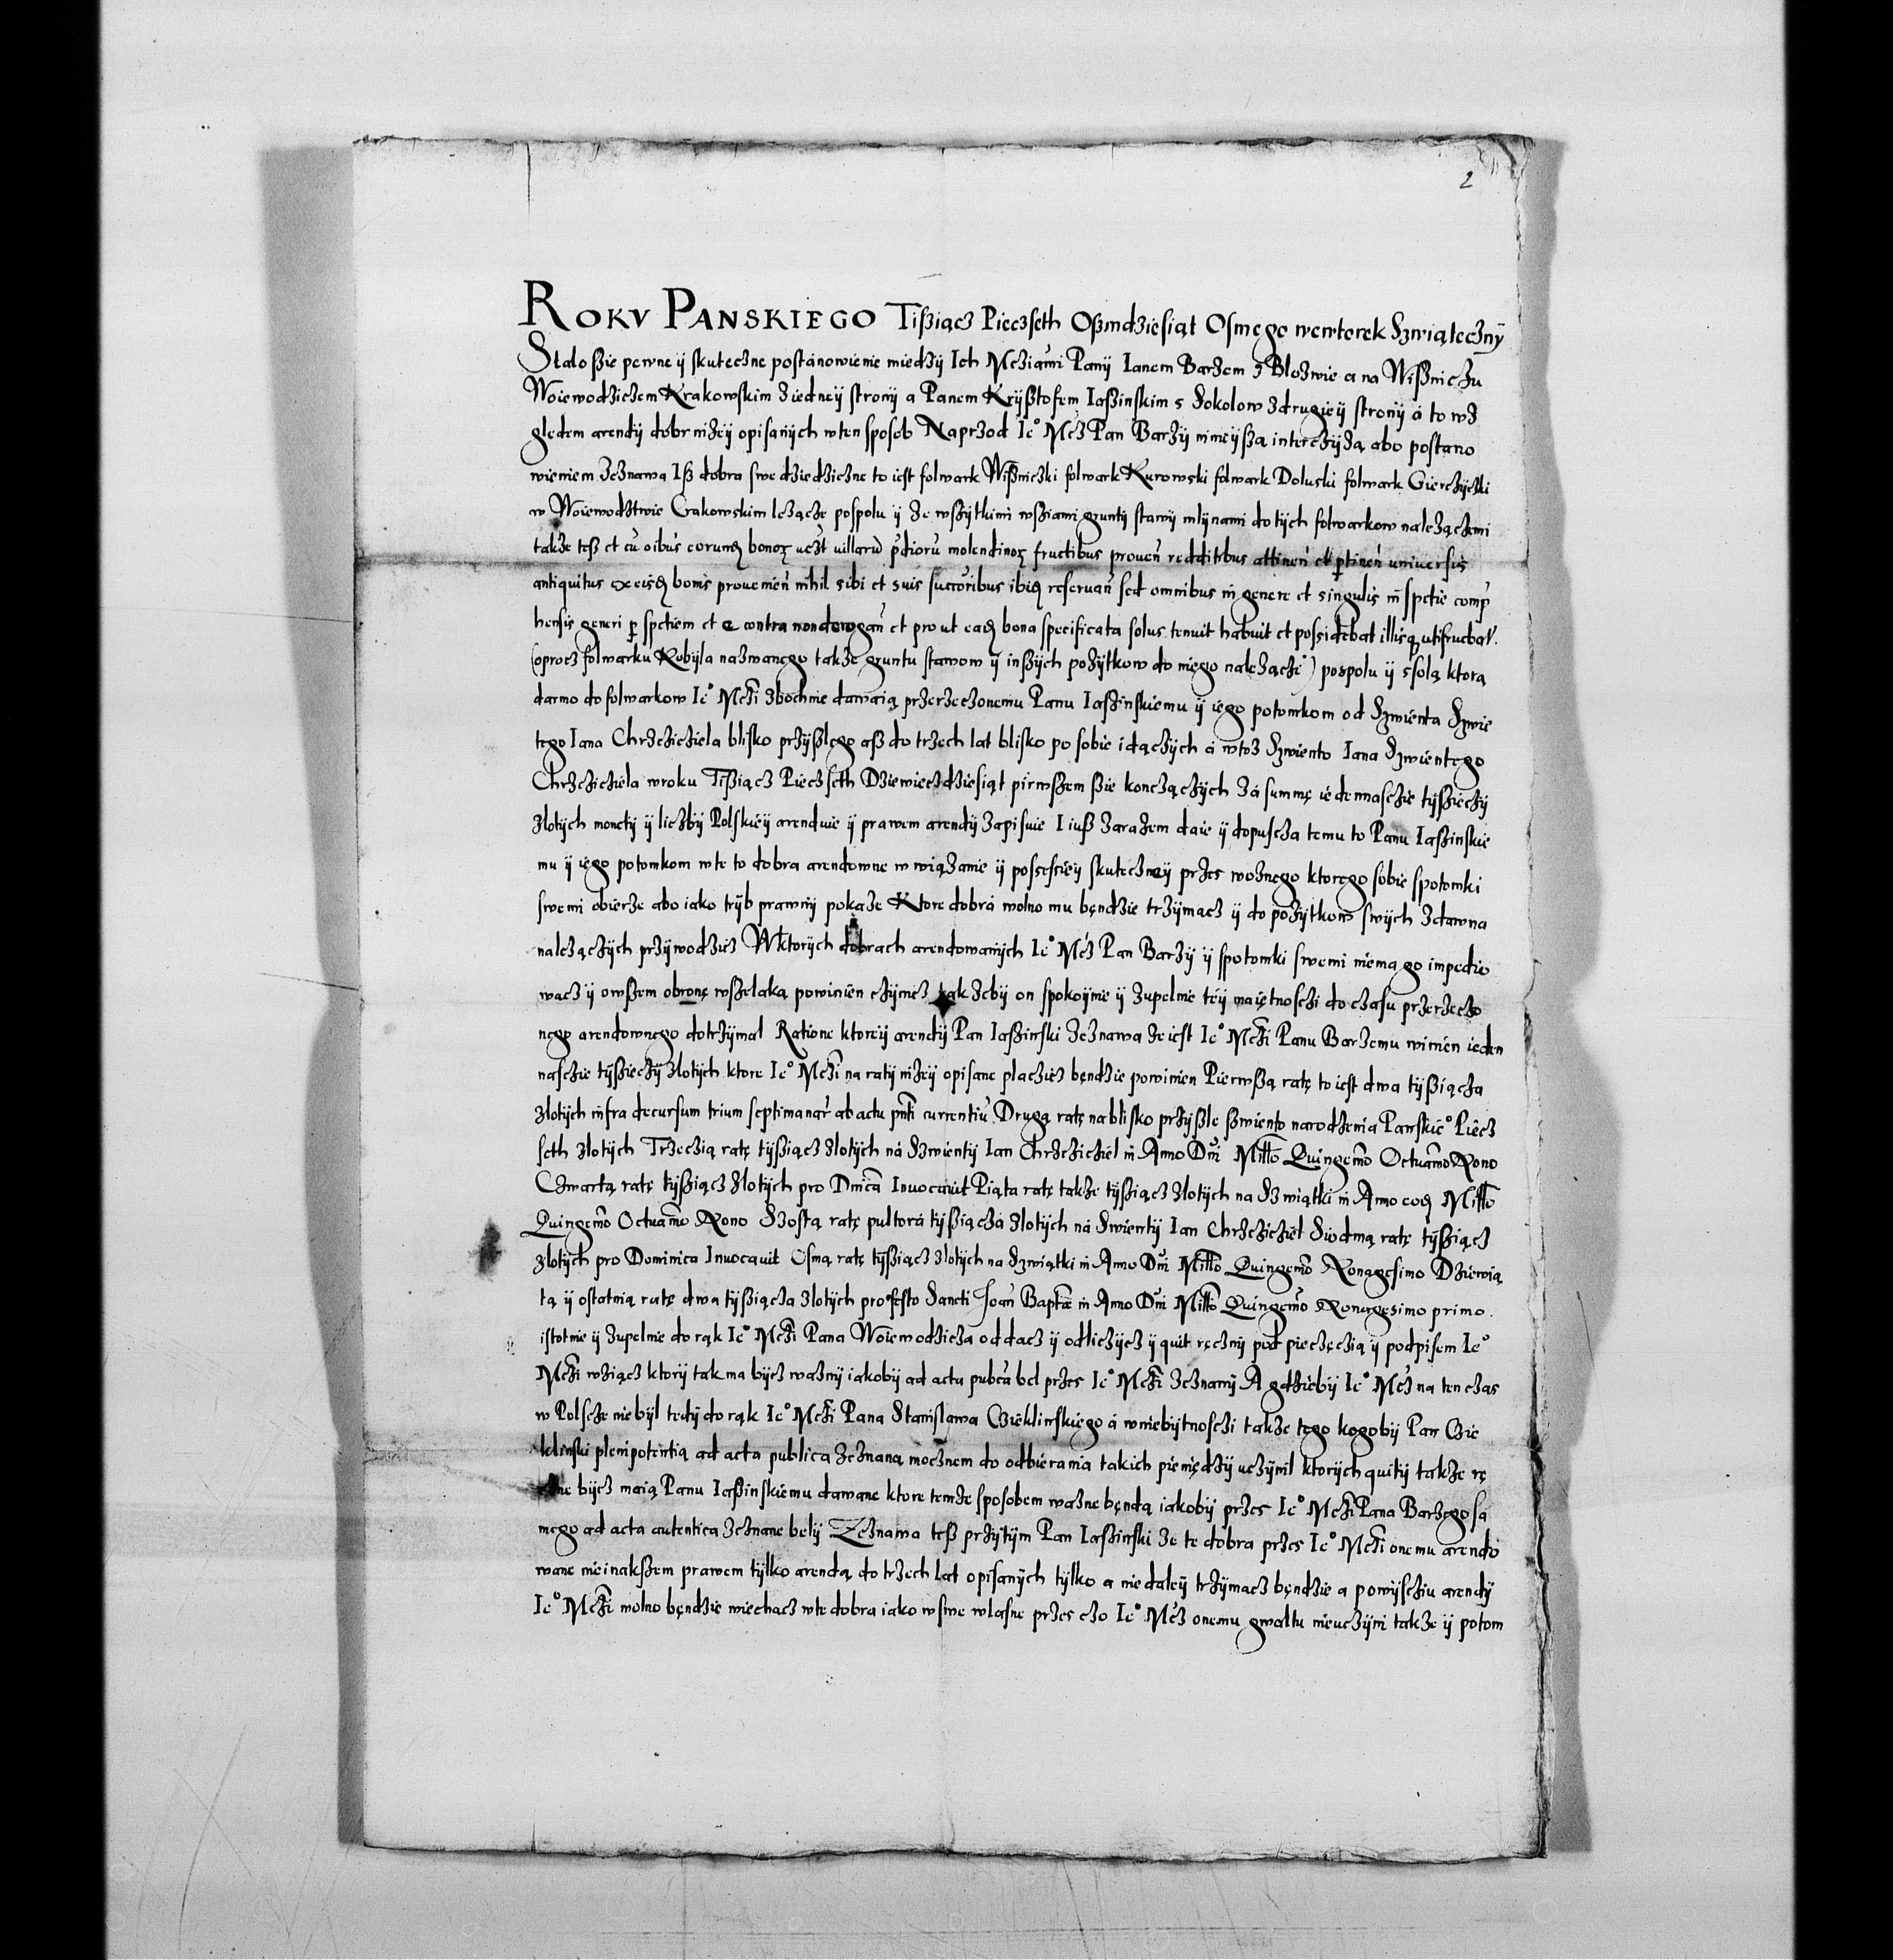 2
ROKV PANSKIEGO Tißiącz Pieczseth Oßmdziesiąt Osmego wewtorek Szwiąteczny
Stało ßie pewne ÿ skuteczne postánowienie miedzÿ Ich Mcziami Panÿ Ianem Barzem z Błozwie a na Wißniczu
Woiewodziczem Krakowskim ziedneÿ stronÿ a Panem Krÿßtofem Iaßinskim s Sokolow zdrugieÿ stronÿ á to wz
gledem arendÿ dobr nizeÿ opisanÿch wten sposob Naprzod Ieº Mcz Pan Barzÿ ninieÿszą interczÿzą abo postano
wieniem zeznawa Iß dobra swe dziedziczne to iest folwark Wißniczki folwark Kurowski folwark Doluski folwark Gierczÿczki
w Woiewodztwie Crakowskim lezącze pospolu ÿ ze wszÿtkimi wsziami gruntÿ stawÿ młÿnami do tÿch folwarkow nalezączemi
takze teß et cū oibus eorundę bonoꝝ uczt villarū p̄dioru molendinoꝝ fructibus proueñ redditibus attineñ et ꝑtineñ uniuersis
antiquitus ex eisdę bonis prouenieñ nihil sibi et suis succoribus ibidę reseruañ sed omnibus in genere et singulis in spetie comp̄
hensis generi ꝑ spetiem et e contra non derogañ et prout eadę bona specificata solus tenuit habuit et possidebat illisq utifruebat.
(oprocz folwarku Kobÿla nazwanego takze gruntu stawow ÿ inßÿch pozÿtkow do niego nalezączi) pospolu ÿ ssolą ktorą
darmo do folwarkow Ieº Mczi zbochnie dawaią przerzeczonemu Panu Iaßinskiemu ÿ iego potomkom od Szwienta Szwie
tego Iana Chrzcziciela blisko przÿßlego aß do trzech lat blisko po sobie idączÿch á wtoz Szwiento Iana Szwientego
Chrzcziciela wroku Tißiącz Piecz seth Dziewieczdziesiąt pirwszem ßie konczączÿch Zá summę iedennasczie tÿßieczÿ
zlotÿch monetÿ ÿ liczbÿ Polskieÿ arenduie ÿ prawem arendÿ zapisuie I iuß zarazem daie ÿ dopuscza temu to Panu Iaßinskie
mu ÿ iego potomkom wte to dobra arendowne wwiązanie ÿ possessieÿ skuteczneÿ przes woznego ktorego sobie spotomki
swemi obierze abo iako trÿb prawnÿ pokaze Ktore dobrá wolno mu będzie trzÿmacz ÿ do pozÿtkow swÿch zdawna
nalezączÿch przÿwodzicz Wktorÿch dobrach arendowanÿch Ieº Mcz Pan Barzÿ ÿ spotomki swemi niema go impedio
wacz ÿ owszem obronę wszelaką powinien czÿnicz tak zebÿ on spokoÿnie ÿ zupelnie teÿ maiętnosczi do czasu przerzeczo
nego arendownego dotrzÿmal Ratione ktoreÿ arendÿ Pan Iaßinski zeznawa ze iest Ieº Mczi Panu Barzemu winien ieden
nasczie tÿßieczÿ zlotÿch ktore Ieº Mczi na ratÿ nizeÿ opisane placzicz będzie powinien Pierwszą ratę to iest dwa tÿßiącza
zlotÿch infra decursum trium septimanar ab actu pn̄ti currentiū Drugą ratę nablisko przÿßle szwiento narodzenia Panskieº Piecz
seth zlotÿch Trzeczią ratę tÿßiącz zlotÿch ná Szwientÿ Ian Chrzcziciel in Anno Dn̄i Mill̄o Quingem̄o Octuam̄o Nono
Czwartą ratę tÿßiącz zlotÿch pro Dm̄ca Inuocauit Piąta ratę takze tÿßiącz zlotÿch na Szwiątki in Anno eodę Mill̄o
Quingem̄o Octuam̄o Nono Szostą ratę pultorá tÿßiączá zlotÿch ná Swientÿ Ian Chrzcziciel Siodmą ratę tÿßiącz
zlotÿch pro Dominica Inuocauit Osmą ratę tÿßiącz zlotÿch na Szwiątki in Anno Dn̄i Mill̄o Quingem̄o Nonagesimo Dziewią
tą ÿ ostatnią ratę dwa tÿßiącza zlotÿch pro festo Sancti Ioañ Baptæ in Anno Dn̄i Mill̄o Quingem̄o Nonagesimo primo
istotnie ÿ zupelnie do rąk Ieº Mczi Pana Woiewodzicza oddacz ÿ odliczÿcz ÿ quit ręcznÿ pod pieczęczią ÿ podpisem Ieº
Mczi wziącz ktorÿ tak ma bÿcz waznÿ iakobÿ ad acta pubca bel przes Ieº Mczi zeznanÿ A gdziebÿ Ieº Mcz na ten czas
w Polscze niebÿl tedÿ do rąk Ieº Mczi Pana Stanislawa Czieklinskiego á wniebÿtnosczi takze tego kogobÿ Pan Czie
klinski plenipotentią ad acta publica zeznaną mocznem do odbierania takich pieniędzÿ uczÿnil ktorÿch quitÿ takze rę
czne bÿcz maią Panu Iaßinskiemu dawane ktore temze sposobem wazne będą iakobÿ przes Ieº Mczi Pana Barzego sa
mego ad acta autentica zeznane belÿ Zeznawa teß przÿtÿm Pan Iaßinski ze te dobra przes Ieº Mczi onemu arendo
wane nieinakszem prawem tÿlko arendą do trzech lat opisanÿch tÿlko a nie daleÿ trzÿmacz będzie a powÿscziu arendÿ
Ieº Mczi wolno będzie wiechacz wte dobra iako wswe wlasne przes czo Ieº Mcz onemu gwaltu nieuczÿni takze ÿ potom